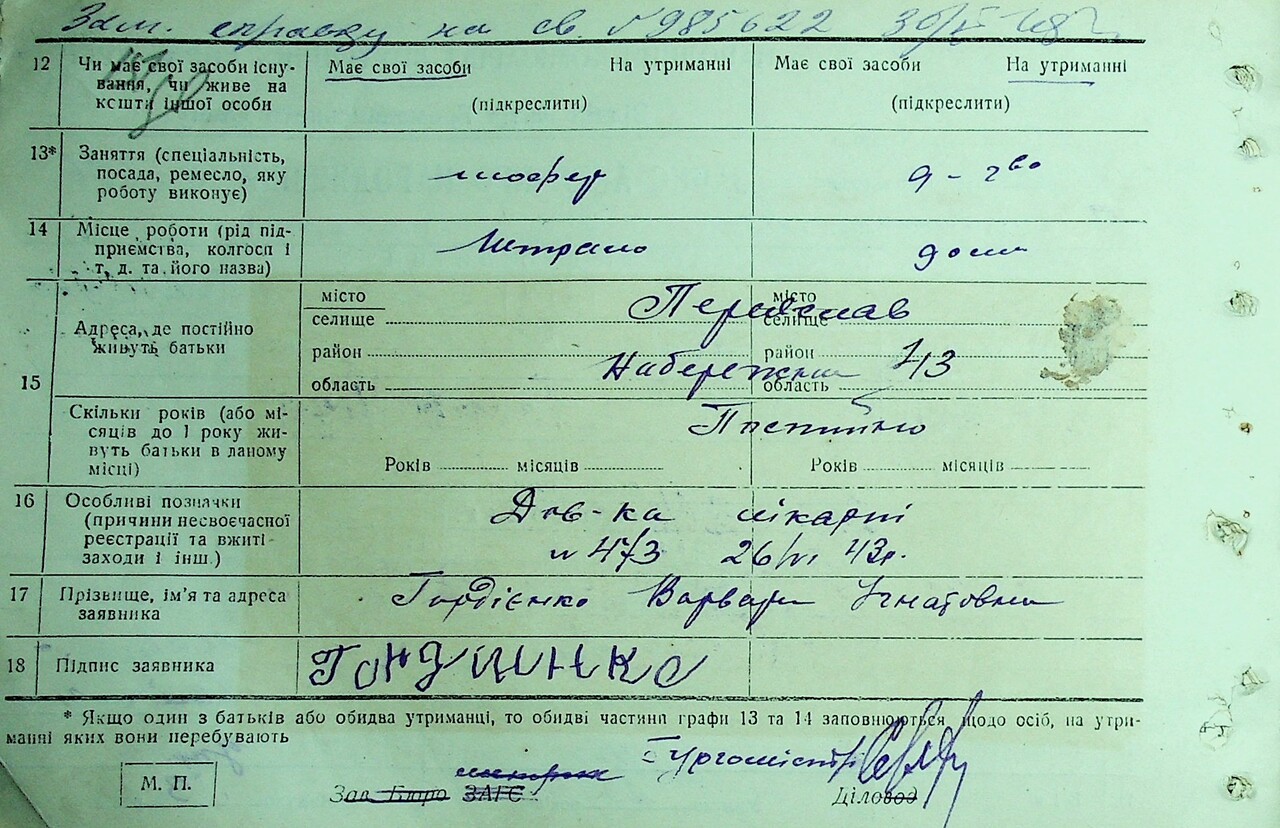 Зам. справку на св. №985622
12 Чи має свої засоби існу- Має свої засоби На утриманні Має свої засоби На утриманні
вання, чи живе на
кошти іншої особи (підкреслити) (підкреслити)
13* Заняття (спеціальність,
посада, ремесло, яку шофер д-гво
роботу виконує)
14 Місце роботи (рід під-
приємства, колгосп і дома
т. д. та його назва)
місто місто
селище Переяслав селище
Адреса, де постійно
живуть батьки район Набережна район 43
15 область область
Скільки років (або мі-
сяців до 1 року жи- Постійно
вуть батьки в даному
місці) Років місяців Років місяців
16 Особливі позначки Дов-ка лікарні
(причини несвоєчасної
реєстрації та вжиті № 473 26/VI 43р.
заходи і інш.)
17 Прізвище, ім'я та адреса Гордієнко Варвара Ігнатовна
заявника
18 Підпис заявника
* Якщо один з батьків або обидва утриманці, то обидві частини графи 13 та 14 заповнюються щодо осіб, на утри-
манні яких вони перебувають
Бургомістр
М. П. Зав. Бюро ЗАГС Діловод